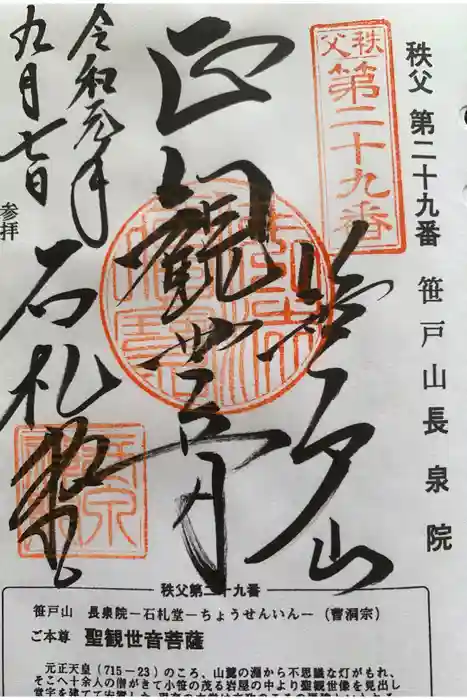 秩父 第二十九番 笹戸山長泉院
秩父
第二十九番
笹戸山
正観世音
石札堂
令和元年
九月七日
参拝
秩父第二十九番
笹戸山 長泉院－石札堂－ちょうせんいん－（曹洞宗）
ご本尊 聖観世音菩薩
元正天皇（715－23）のころ、山麓の淵から不思議な灯がもれ、
そこへ十余人の僧がきて小笹の茂る岩屋の中より聖観世音像を見出し